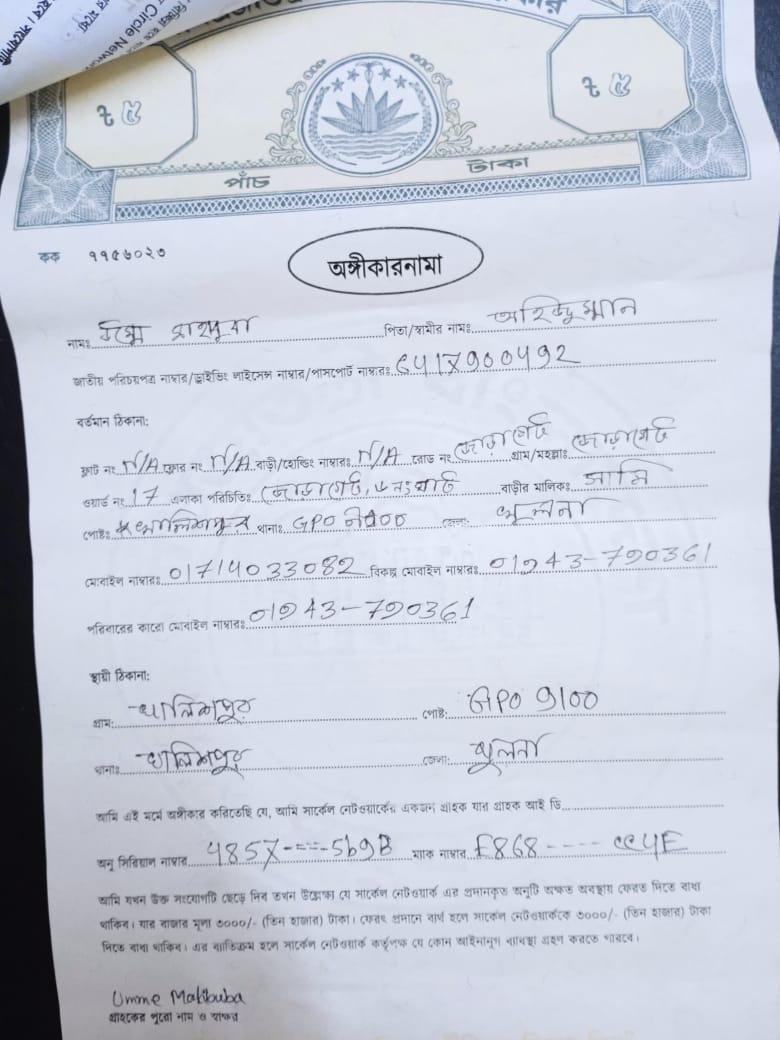 Circle Netwo
৳ ৫
৳ ৫
পাঁচ টাকা
কক ৭৭৫৬০২৩
অঙ্গীকারনামা
নামঃ উম্মে মাহবুবা পিতা/স্বামীর নামঃ
জাতীয় পরিচয়পত্র নাম্বার/ড্রাইভিং লাইসেন্স নাম্বার/পাসপোর্ট নাম্বারঃ
বর্তমান ঠিকানা:
ফ্লাট নং N/A ফ্লোর নং N/A বাড়ী/হোল্ডিং নাম্বারঃ N/A রোড নং জোড়াগেট গ্রাম/মহল্লাঃ জোড়াগেট
ওয়ার্ড নং 17 এলাকা পরিচিতিঃ জোড়াগেট, ৬ নং ঘাট বাড়ীর মালিকঃ
পোষ্টঃ খালিশপুর থানাঃ GPO জেলাঃ খুলনা
মোবাইল নাম্বারঃ 01714033082 বিকল্প মোবাইল নাম্বারঃ 01943-790361
পরিবারের কারো মোবাইল নাম্বারঃ 01943-790361
স্থায়ী ঠিকানা:
গ্রাম: খালিশপুর পোষ্ট: GPO 9100
থানাঃ খালিশপুর জেলা: খুলনা
আমি এই মর্মে অঙ্গীকার করিতেছি যে, আমি সার্কেল নেটওয়ার্কের একজন গ্রাহক যার গ্রাহক আই ডি
অনু সিরিয়াল নাম্বার 4857X----5b9B ম্যাক নাম্বার E868---- CC4E
আমি যখন উক্ত সংযোগটি ছেড়ে দিব তখন উল্লেখ্য যে সার্কেল নেটওয়ার্ক এর প্রদানকৃত অনুটি অক্ষত অবস্থায় ফেরত দিতে বাধ্য
থাকিব। যার বাজার মূল্য ৩০০০/- (তিন হাজার) টাকা। ফেরৎ প্রদানে ব্যর্থ হলে সার্কেল নেটওয়ার্ককে ৩০০০/- (তিন হাজার) টাকা
দিতে বাধ্য থাকিব। এর ব্যতিক্রম হলে সার্কেল নেটওয়ার্ক কর্তৃপক্ষ যে কোন আইনানুগ ব্যবস্থা গ্রহণ করতে পারবে।
Umme Mahbuba
গ্রাহকের পুরো নাম ও স্বাক্ষর